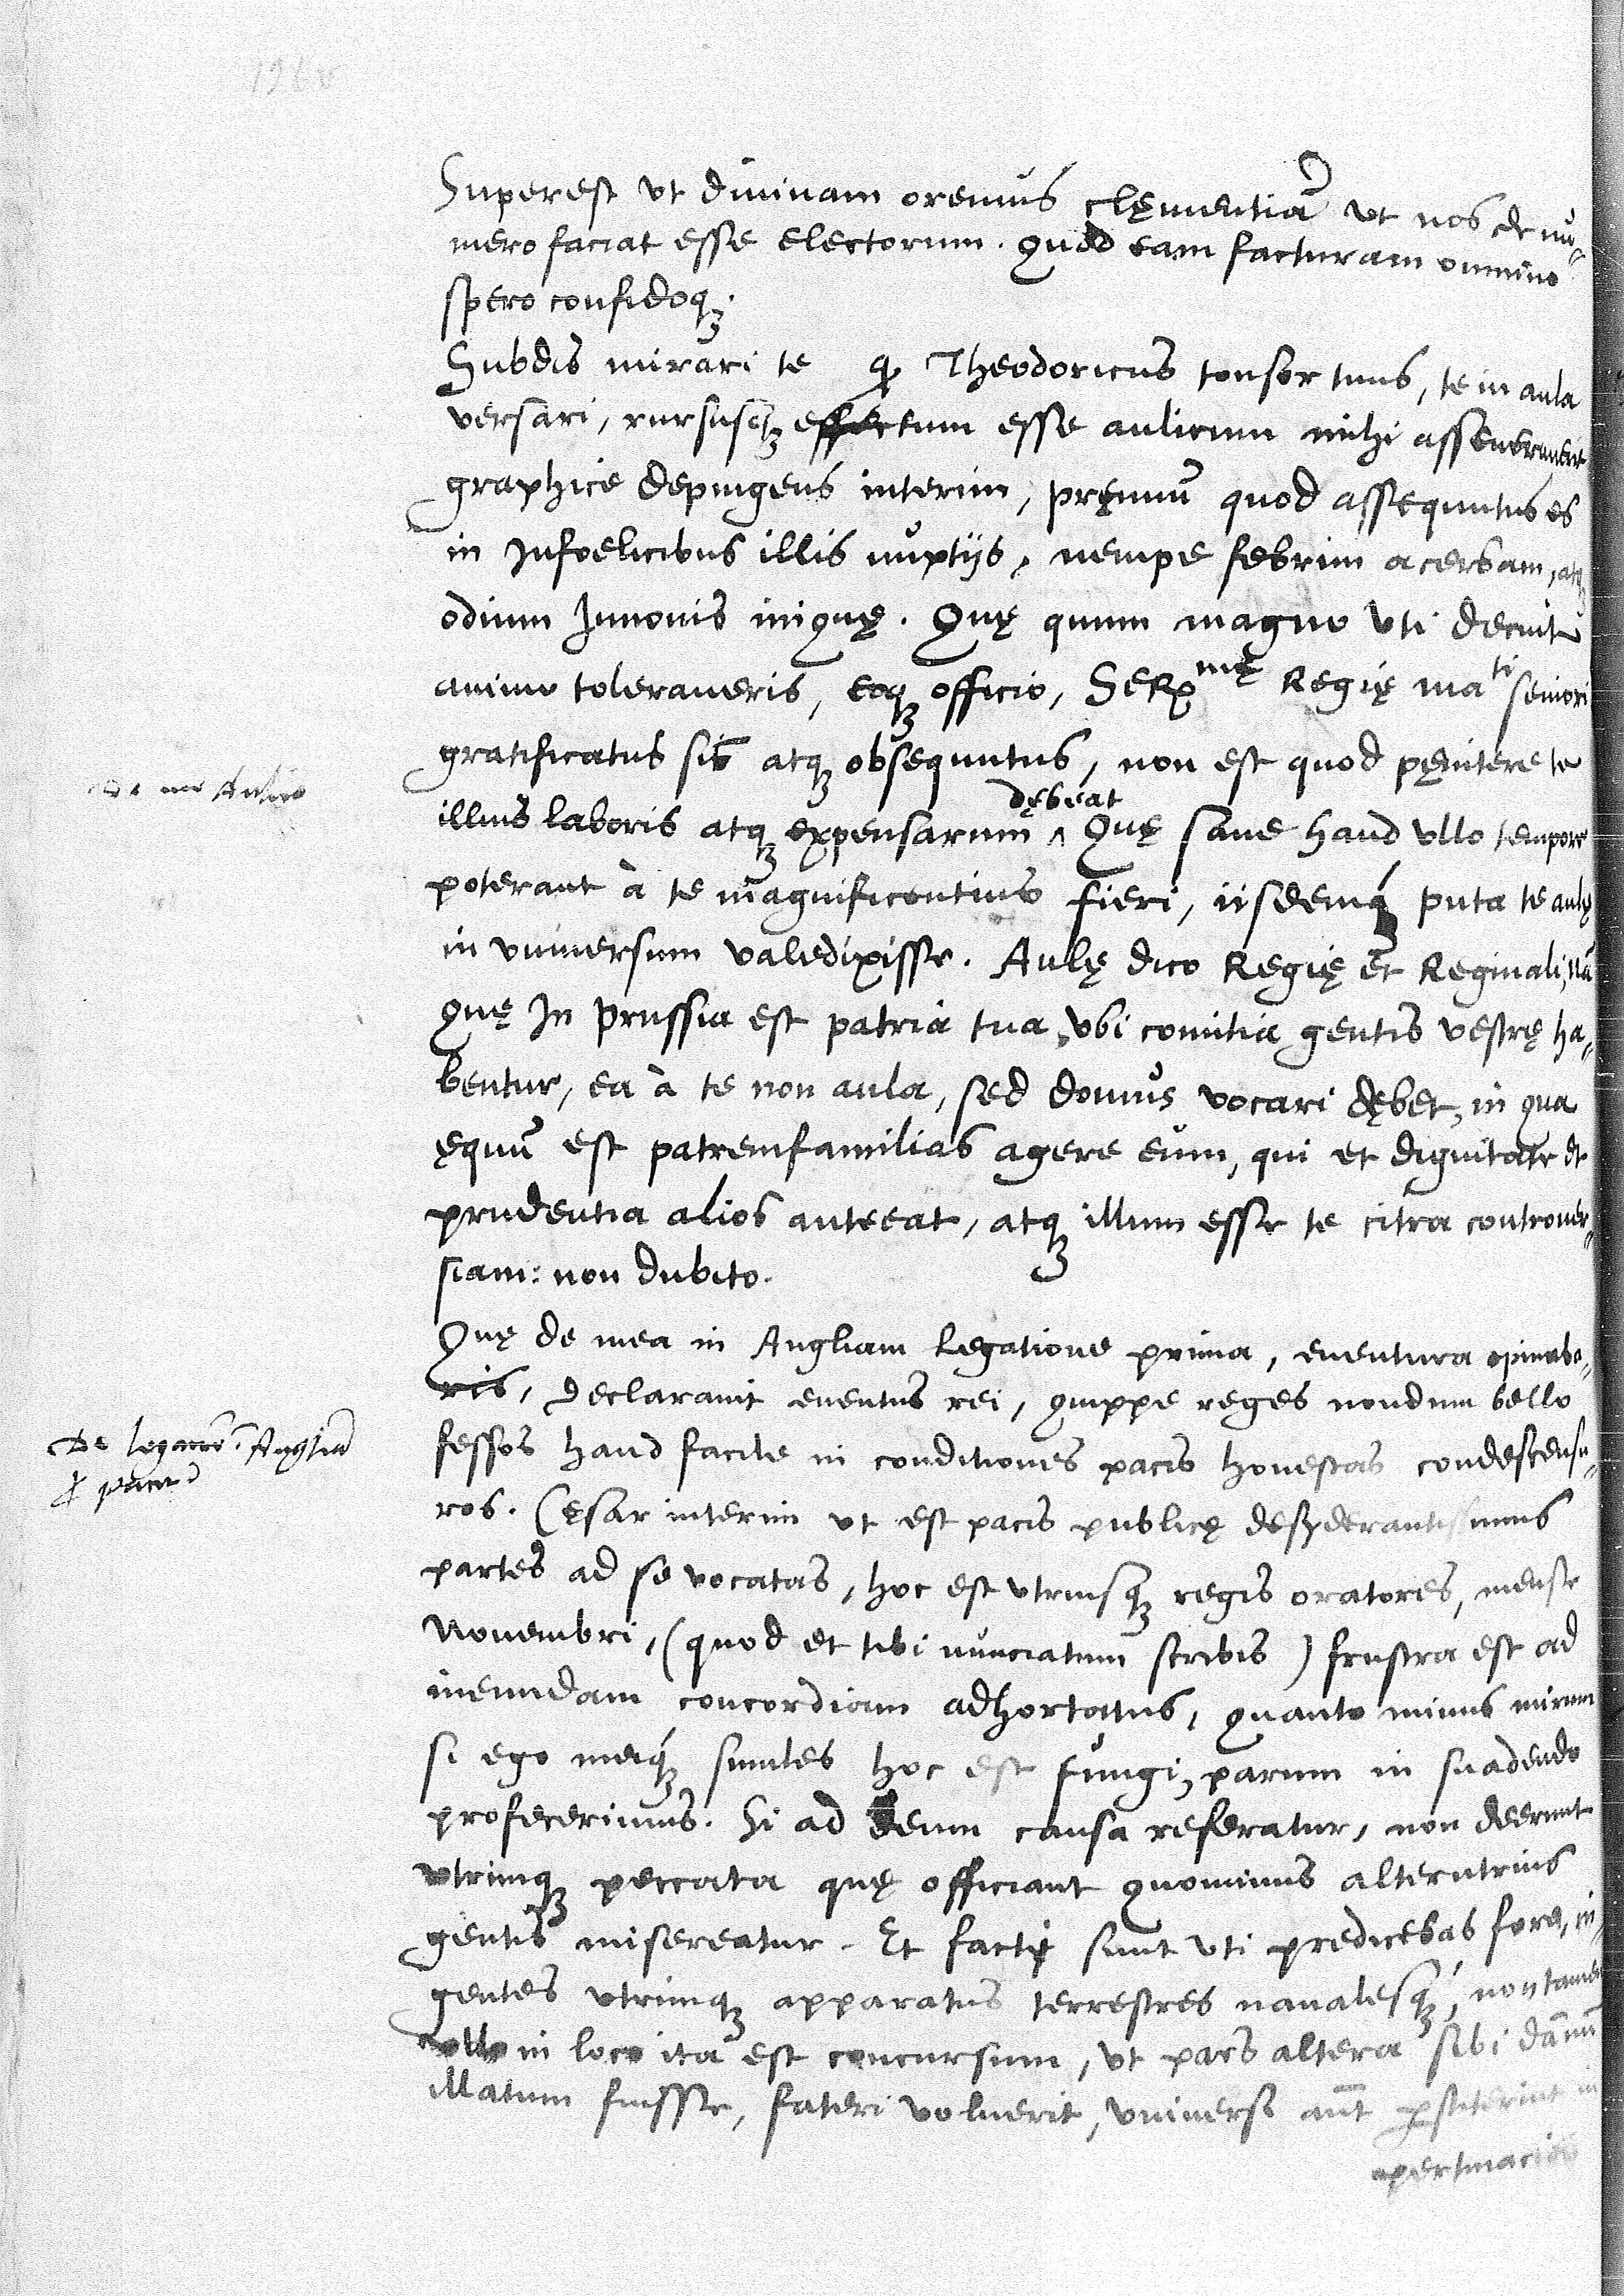 Superest ut divinam oremus clęmentiã ut nos de nu-
mero faciat esse electorum. Quod eam facturam omnino
spero confidoqꝫ.
Subdis mirari te ꝙ Theodoricus tonsor tuus, te in aula
versari, rursusqꝫ effectum esse aulicum mihi asseveraverit
graphice depingens interim, pręmiũ quod assequutus es
in Infoelicibus illis nuptijs, nempe febrim acerbam, atqꝫ
odium Iunonis iniquę. Quę quum magno uti decuit
animo toleraveris, eoqꝫ officio, Ser(mę) Regię ma(ti) seniori
gratificatus sis atqꝫ obsequutus, non est quod pęnitere te
De me Aulico
illius laboris atqꝫ expensarum ^ dębeat Quę sane haud ullo tempore
poterant à te magnificentius fieri, iisdemqꝫ puta te aulę
in universum valedixisse. Aulę dico Regię et Reginali, nã
Quę In Prussia est patria tua, ubi comitia gentis vestrę ha-
bentur, ea à te non aula, sed domus vocari dębet, in qua
ęquũ est patremfamilias agere eum, qui et dignitate et
prudentia alios anteeat, atqꝫ illum esse te citra controver-
siam: non dubito.
Quę de mea in Angliam Legatione prima, eventura opinaba-
ris, declaravit eventus rei, Quippe reges nondum bello
De legatione in Angliã
ꝓ pace
fessos haud facile in conditiones pacis honestas condescensu-
ros. Cęsar interim ut est pacis publicę desyderantissimus
partes ad se vocatas, hoc est utriusqꝫ regis oratores, mense
Novembri, (quod et tibi nunciatum scribis) frustra est ad
ineundam concordiam adhortatus, quanto minus mirum
si ego meiqꝫ similes hoc est fungi, parum in suadendo
profecerimus. Si ad Deum causa referatur, non deerunt
utrimqꝫ peccata quę officiant quominus alterutrius
gentis misereatur. Et facti sunt uti predicebas fore, in-
gentes utrimqꝫ apparatus terrestres navalesqꝫ, non tamen
ullo in loco ita est concursum, ut pars altera sibi damnũ
illatum fuisse, fateri voluerit, universi aũt perstiterint in
pertinaciae